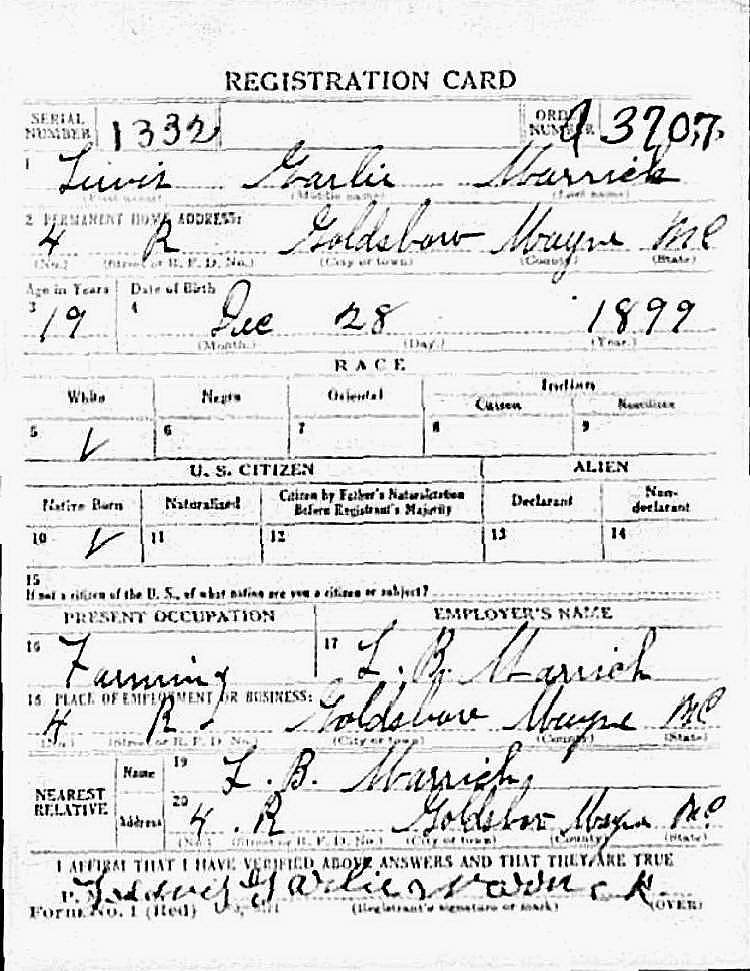 REGISTRATION CARD
SERIAL NUMBER 1332 ORDER NUMBER 3707
1 Garlie
(First name) (Middle name) (Last name)
2 PERMANENT HOME ADDRESS:
4 R Goldsboro Wayne NC
(No.) (Street or R. F. D. No.) (City or town) (County) (State)
Age in Years Date of Birth
3 19 4 Dec 28 1899
(Month.) (Day.) (Year.)
RACE
White Negro Oriental Indian
Citizen Noncitizen
5 √ 6 7 8 9
U. S. CITIZEN ALIEN
Native Born Naturalized Citizen by Father's Naturalization Before Registrant's Majority Declarant Non-declarant
10 √ 11 12 13 14
15
If not a citizen of the U. S., of what nation are you a citizen or subject?
PRESENT OCCUPATION EMPLOYER'S NAME
16 Farming 17 L. B.
18 PLACE OF EMPLOYMENT OR BUSINESS:
4 R Goldsboro Wayne NC
(No.) (Street or R. F. D. No.) (City or town) (County) (State)
NEAREST RELATIVE
Name 19 L. B.
Address 20 4 R Goldsboro Wayne NC
(No.) (Street or R. F. D. No.) (City or town) (County) (State)
I AFFIRM THAT I HAVE VERIFIED ABOVE ANSWERS AND THAT THEY ARE TRUE
Garlie
Form No. 1 (Red) (Registrant's signature or mark) (OVER)